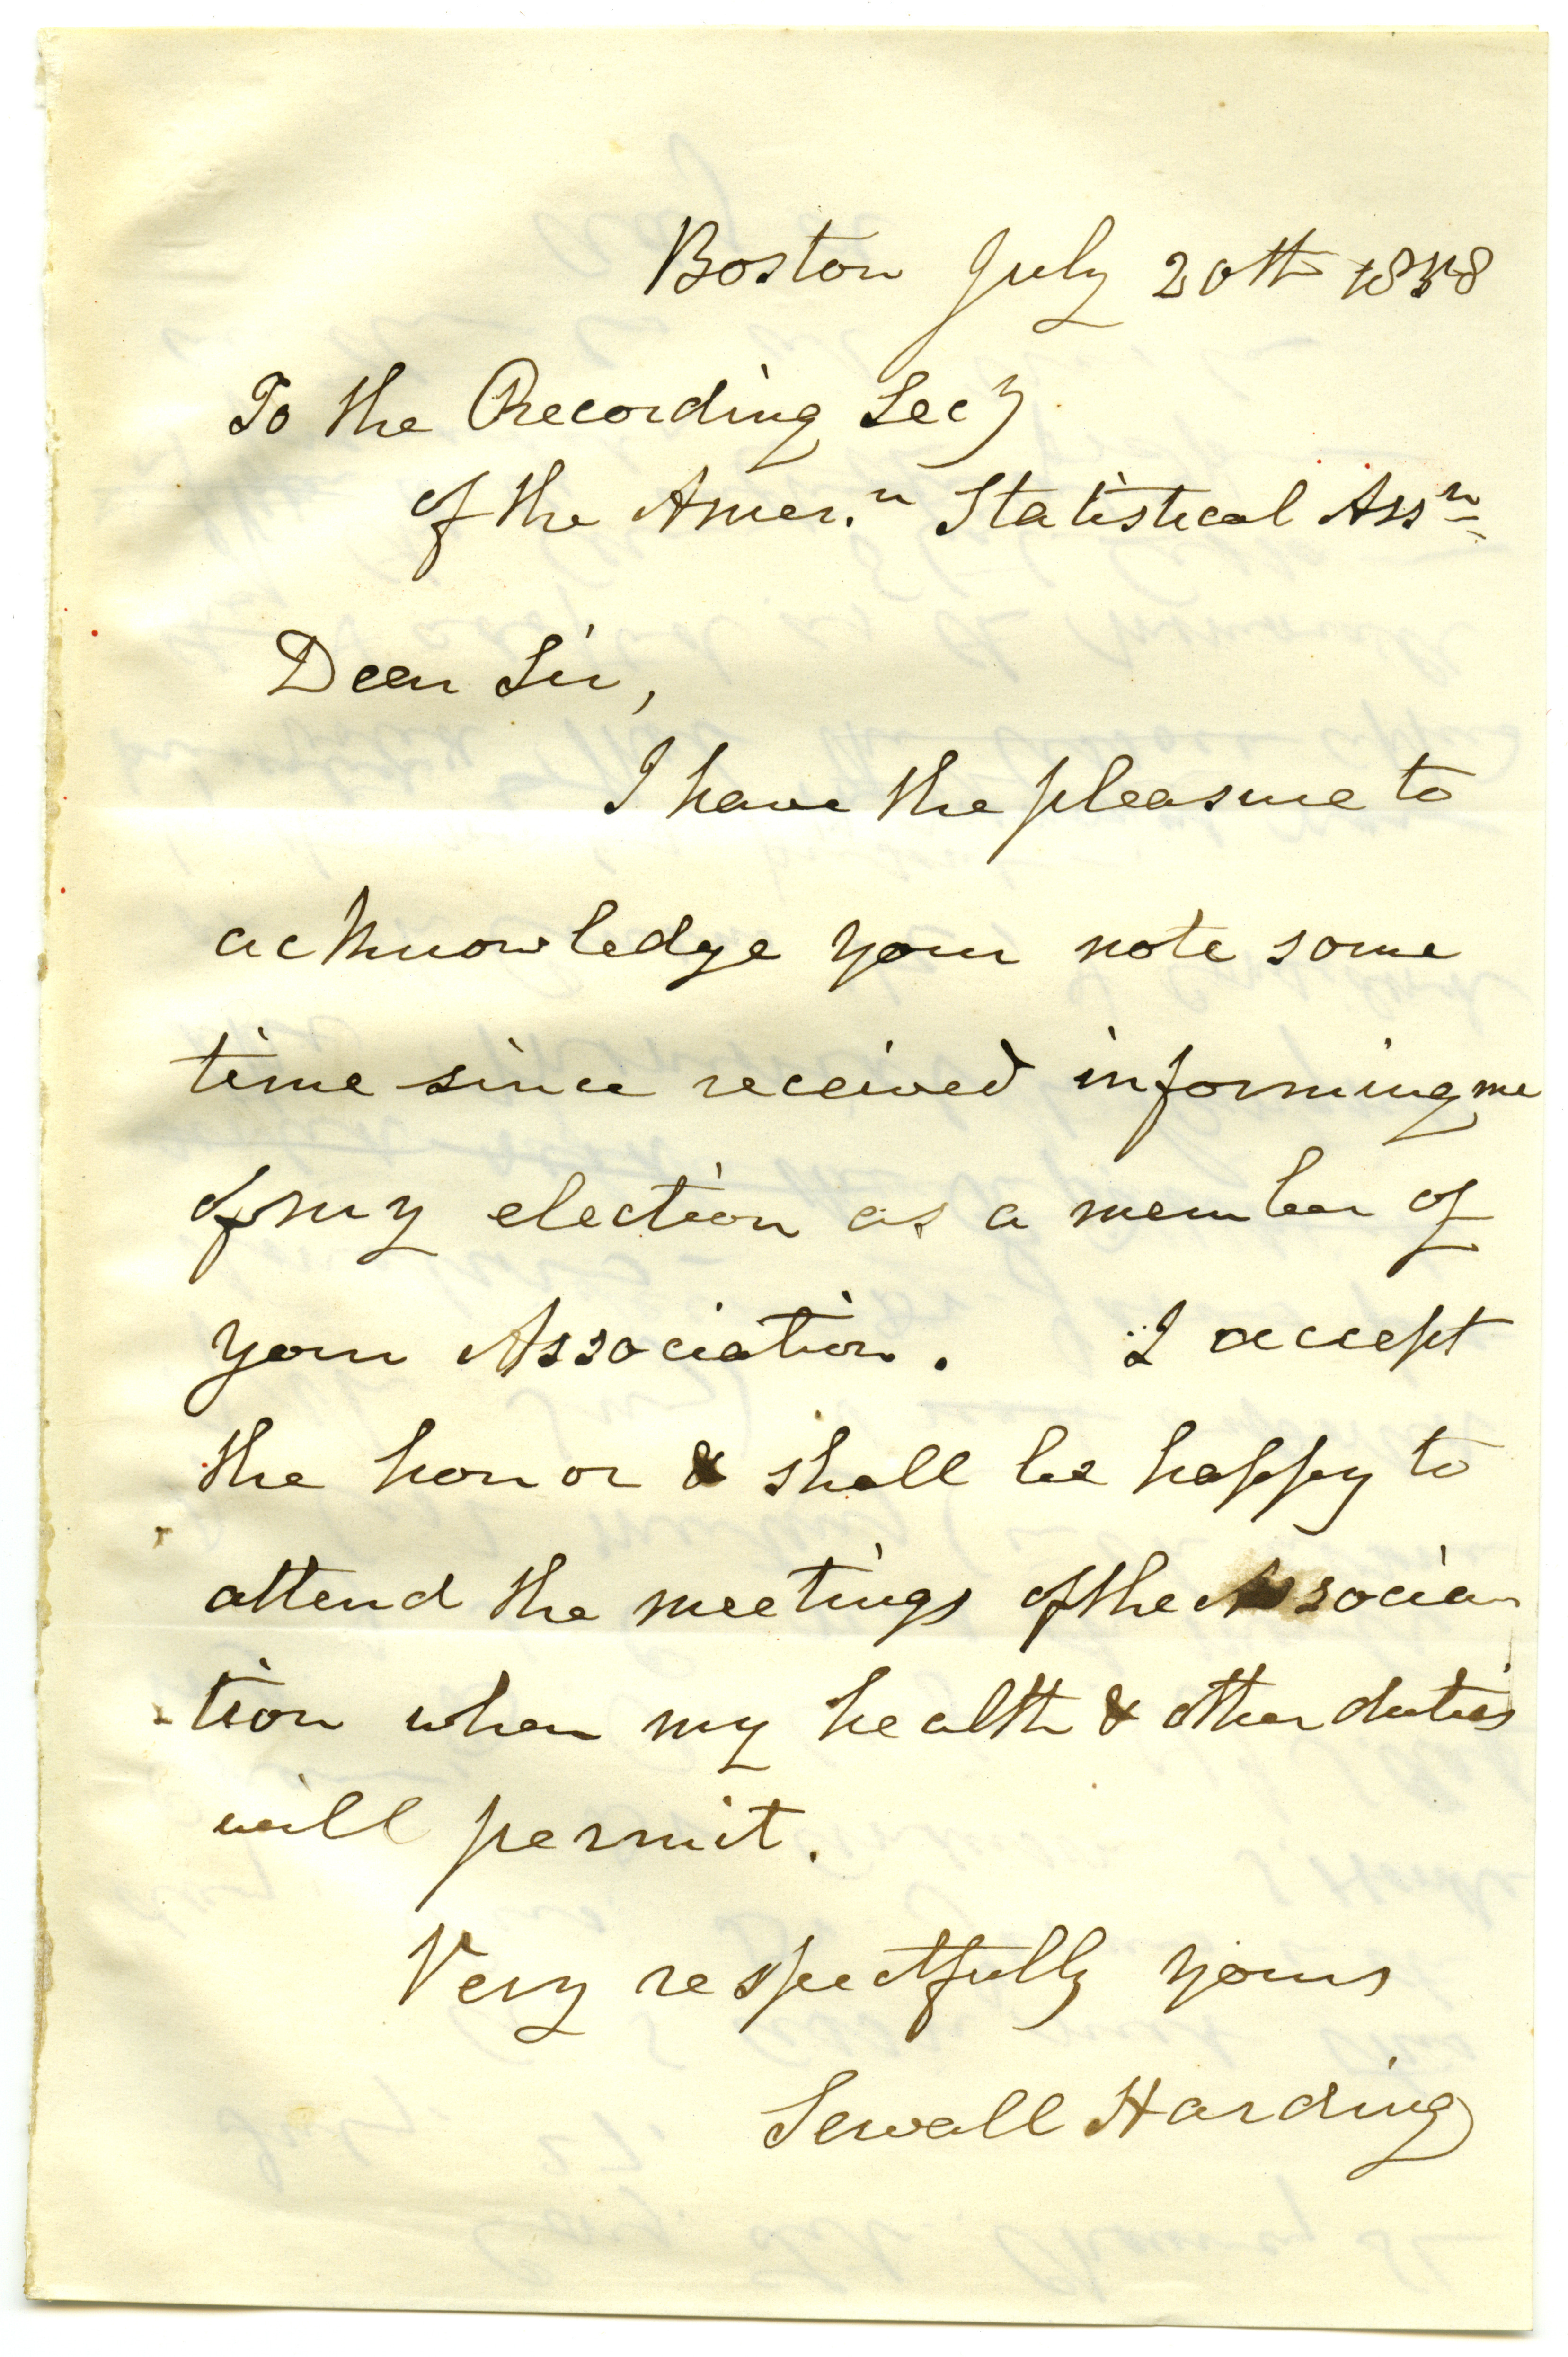 Boston July 20th 1858
To the Recording Secy
of the Amer.n Statistical Assn
Dear Sir,
I have the pleasure to
acknowledge your note some
time since received informing me
of my election as a member of
your Association. I accept
the honor & shall be happy to
attend the meetings of the Associa
tion when my health & other duties
will permit.
Very respectfully yours
Sewall Harding